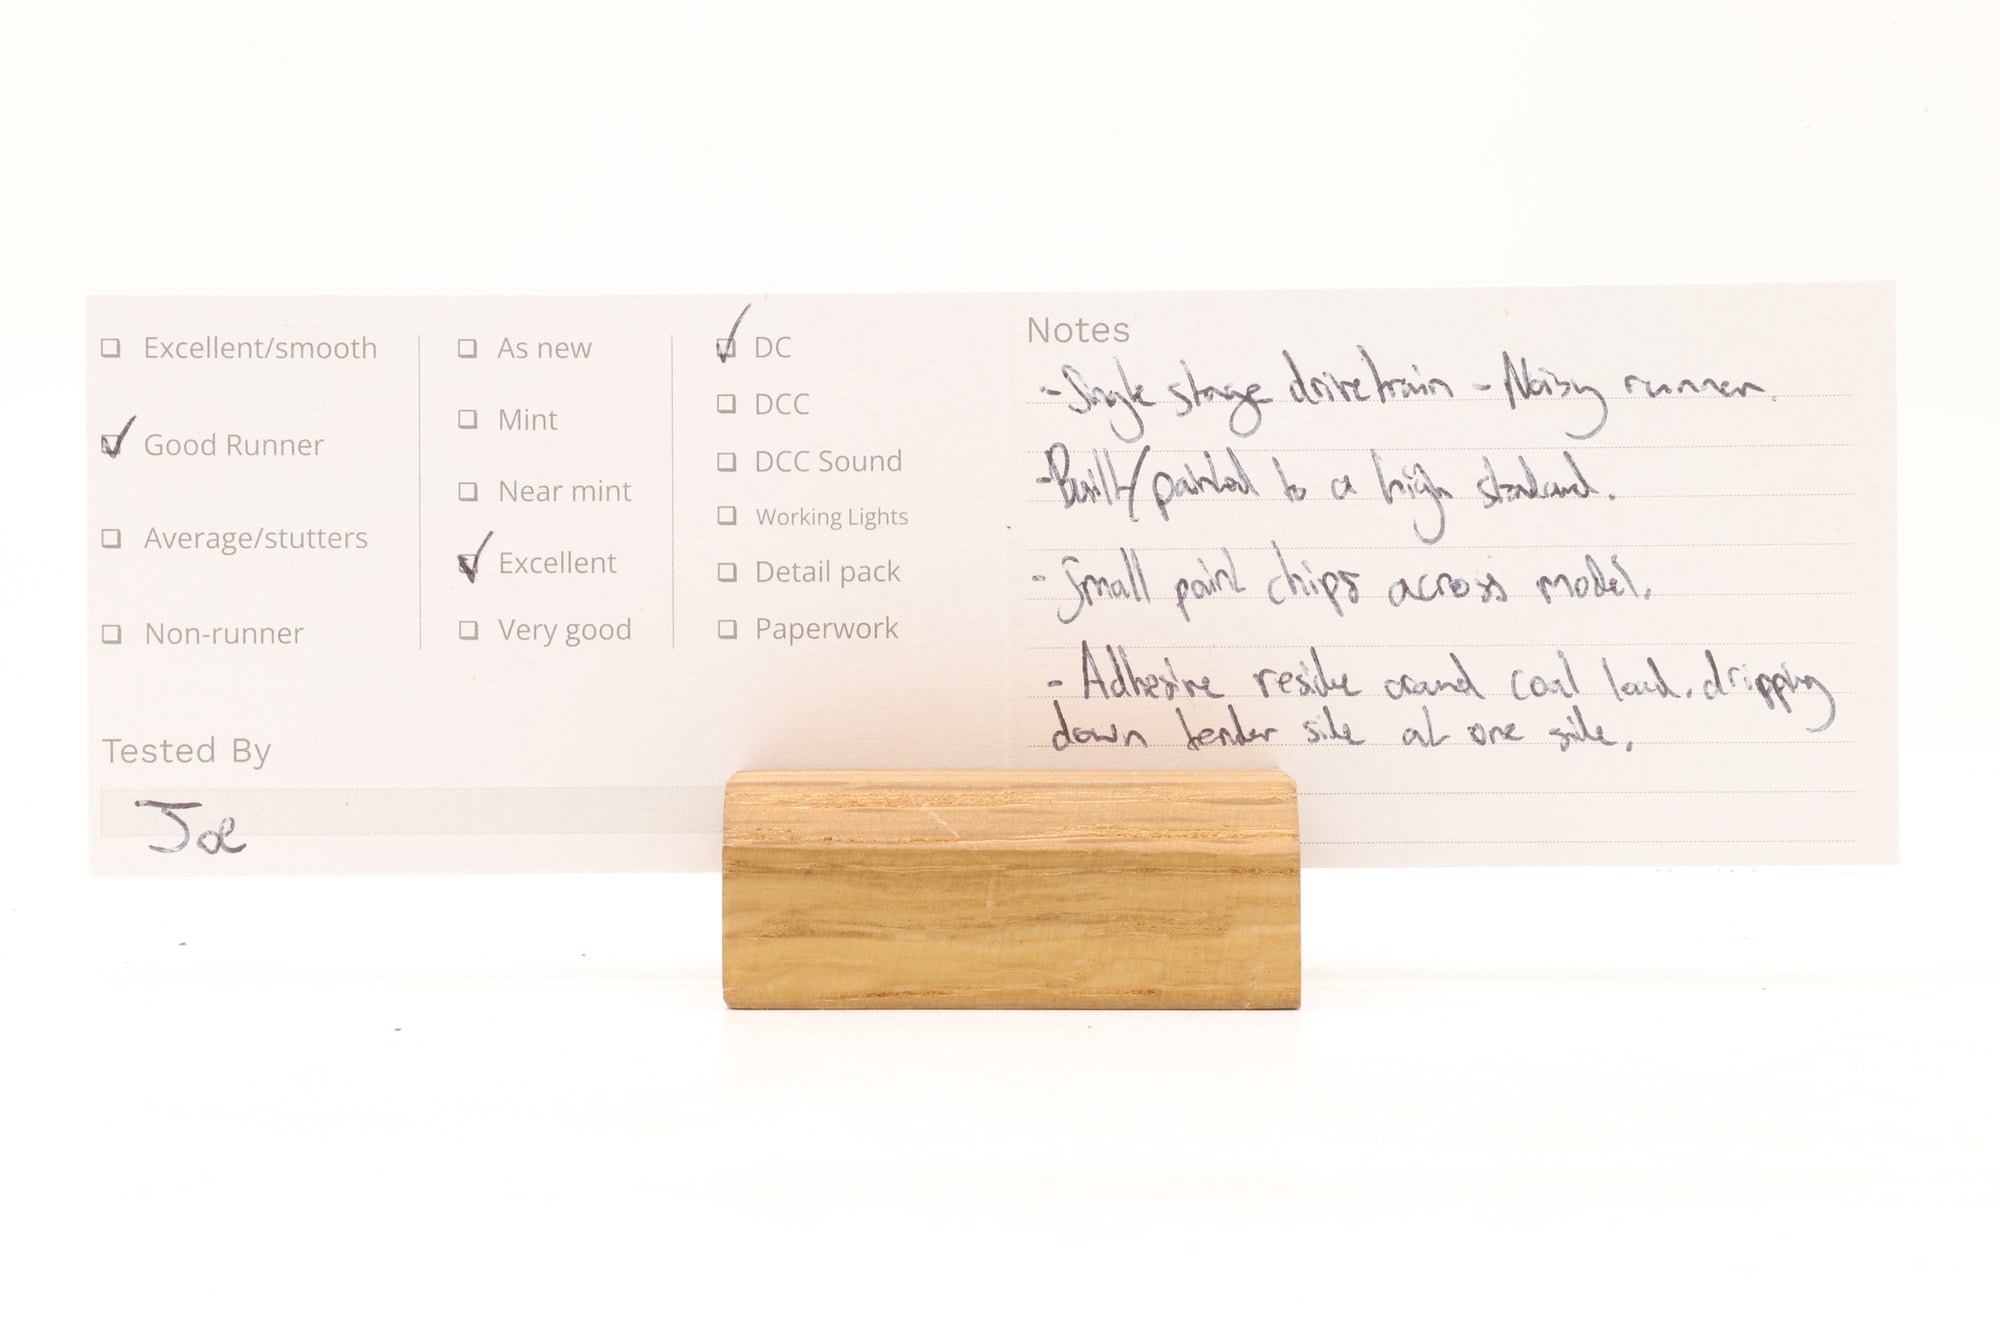 Excellent/smooth
Good Runner
Average/stutters
Non-runner
As new
Mint
Near mint
Excellent
Very good
DC
DCC
DCC Sound
Working Lights
Detail pack
Paperwork
Tested By
Joe
Notes
- Single stage drivetrain - Noisy runner.
- Built/painted to a high standard.
- Small paint chips across model.
- Adhesive residue around coal load, dripping
down tender side at one side.